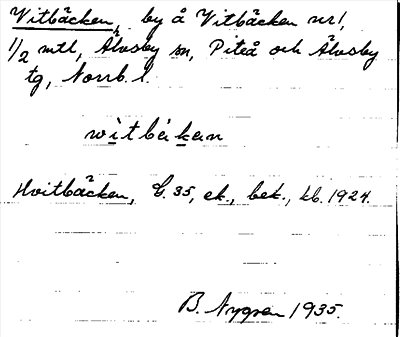 Vitbäcken, by å Vitbäcken nr 1,
1/2 mtl, Älvsby sn, Piteå och Älvsby
tg, Norrb. l.
witbäkan
Hvitbäcken, G. 35, ek., bek., kb. 1924.
B. Nygren 1935.